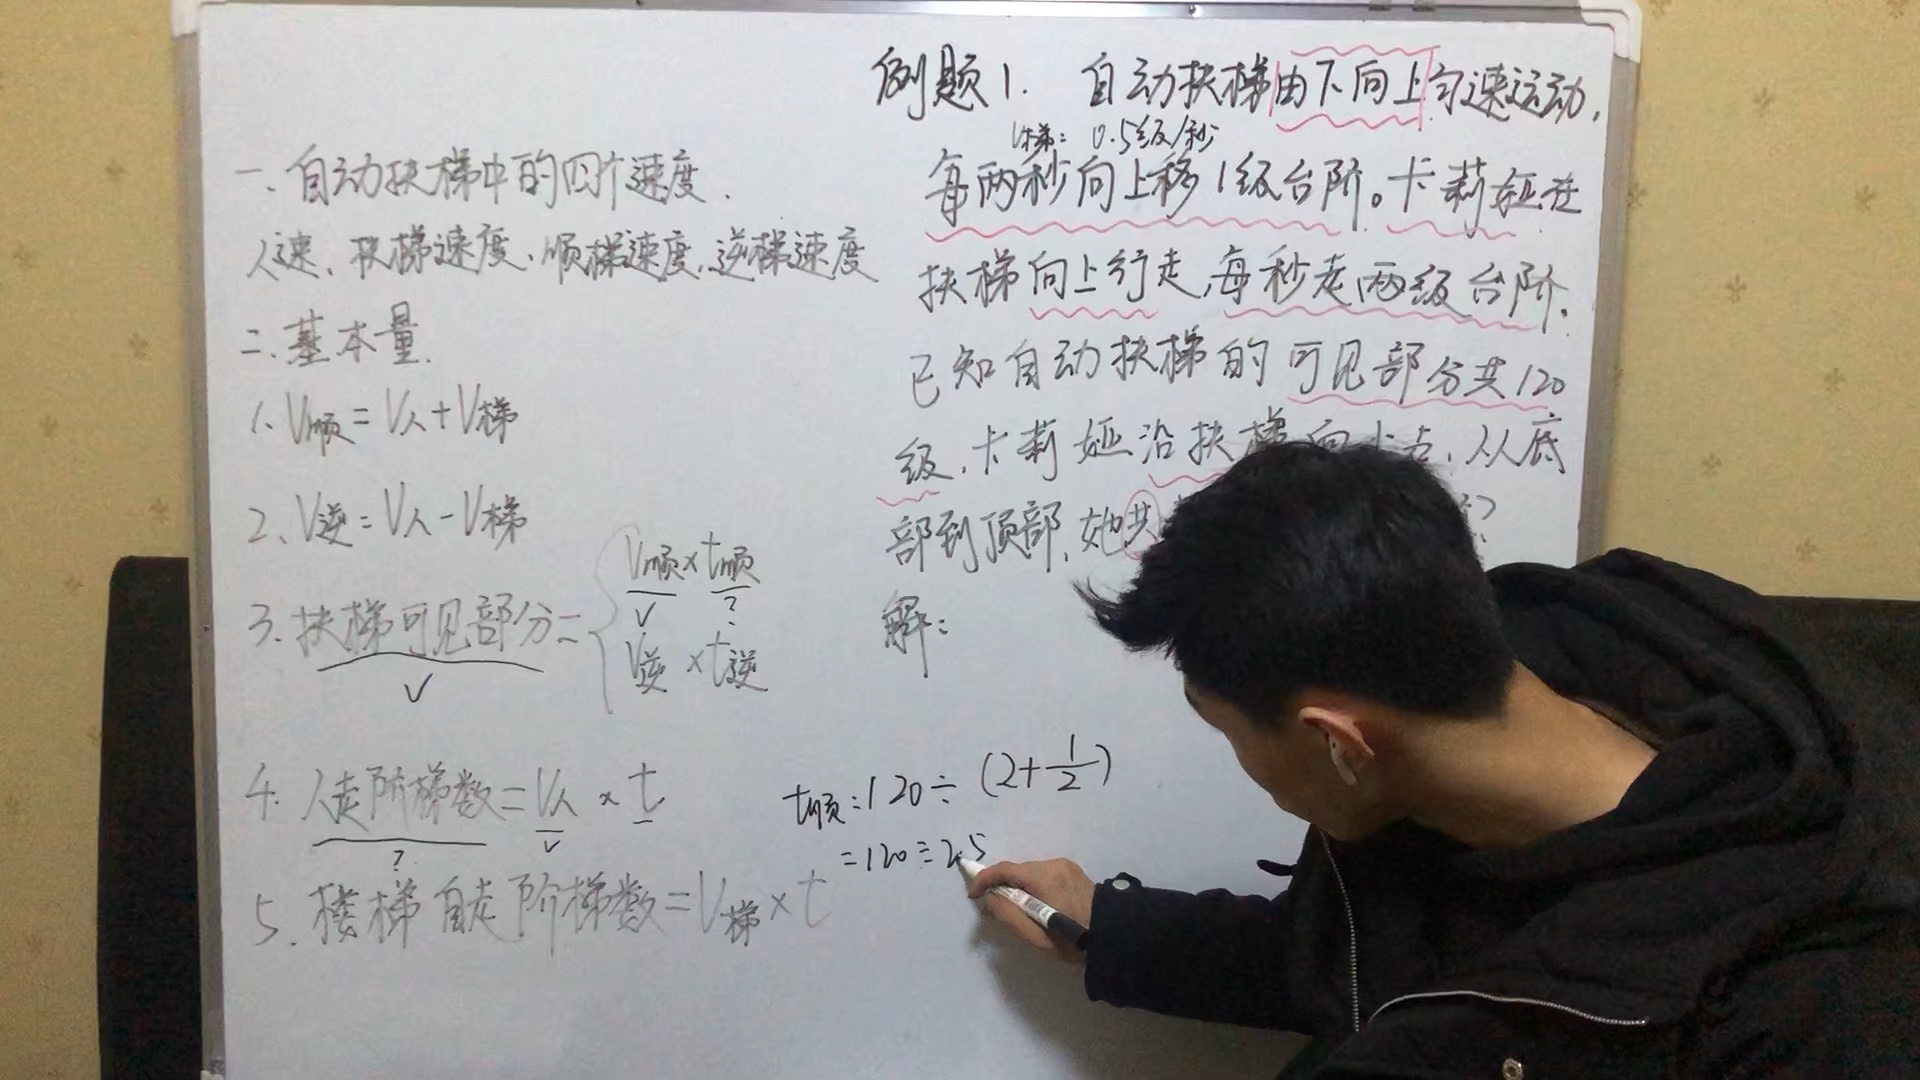 例题1. 自动扶梯由下向上匀速运动,
V梯: 0.5级/秒
每两秒向上移1级台阶。卡莉娅在
扶梯向上行走,每秒走两级台阶.
已知自动扶梯的可见部分共120
级,卡莉娅沿扶梯向上走,从底
部到顶部,她共
解:
一、自动扶梯中的四个速度.
人速、扶梯速度、顺梯速度、逆梯速度
二、基本量.
1、V顺=V人+V梯
2、V逆=V人-V梯
3、扶梯可见部分= V顺×t顺
√ ?
V逆×t逆
√
4. 人走阶梯数=V人×t
? √
5. 楼梯自走阶梯数=V梯×t
t顺:120÷(2+1/2)
=120÷2.5